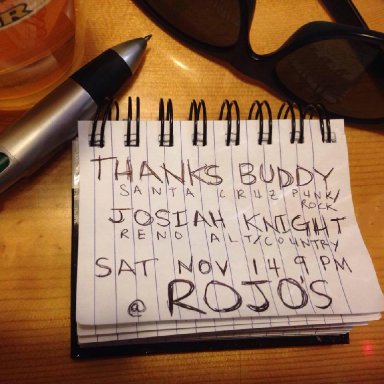 THANKS BUDDY
SANTA CRUZ PUNK/
ROCK
JOSIAH KNIGHT
RENO ALT/COUNTRY
SAT NOV 14 9 PM
@ ROJOS